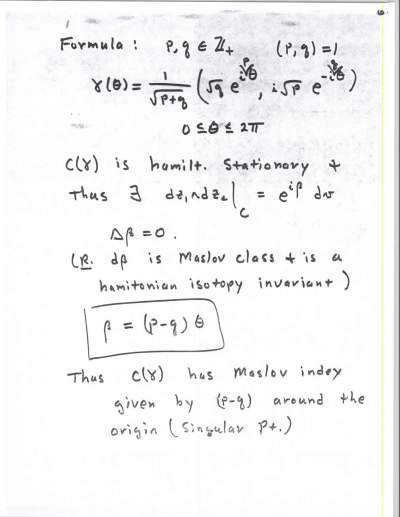 Formula : p, q ∈ ℤ₊ (p, q) = 1
γ(θ) = 1/√(p+q) (√q e^{i√(p/q) θ}, i√p e^{-i√(q/p) θ})
0 ≤ θ ≤ 2π
C(γ) is hamilt. stationary +
Thus ∃ dz₁∧dz₂|_C = e^{iβ} dv
Δβ = 0.
(R. dβ is Maslov class + is a
hamitonian isotopy invariant)
β = (p-q) θ
Thus C(γ) has Maslov index
given by (p-q) around the
origin (Singular Pt.)